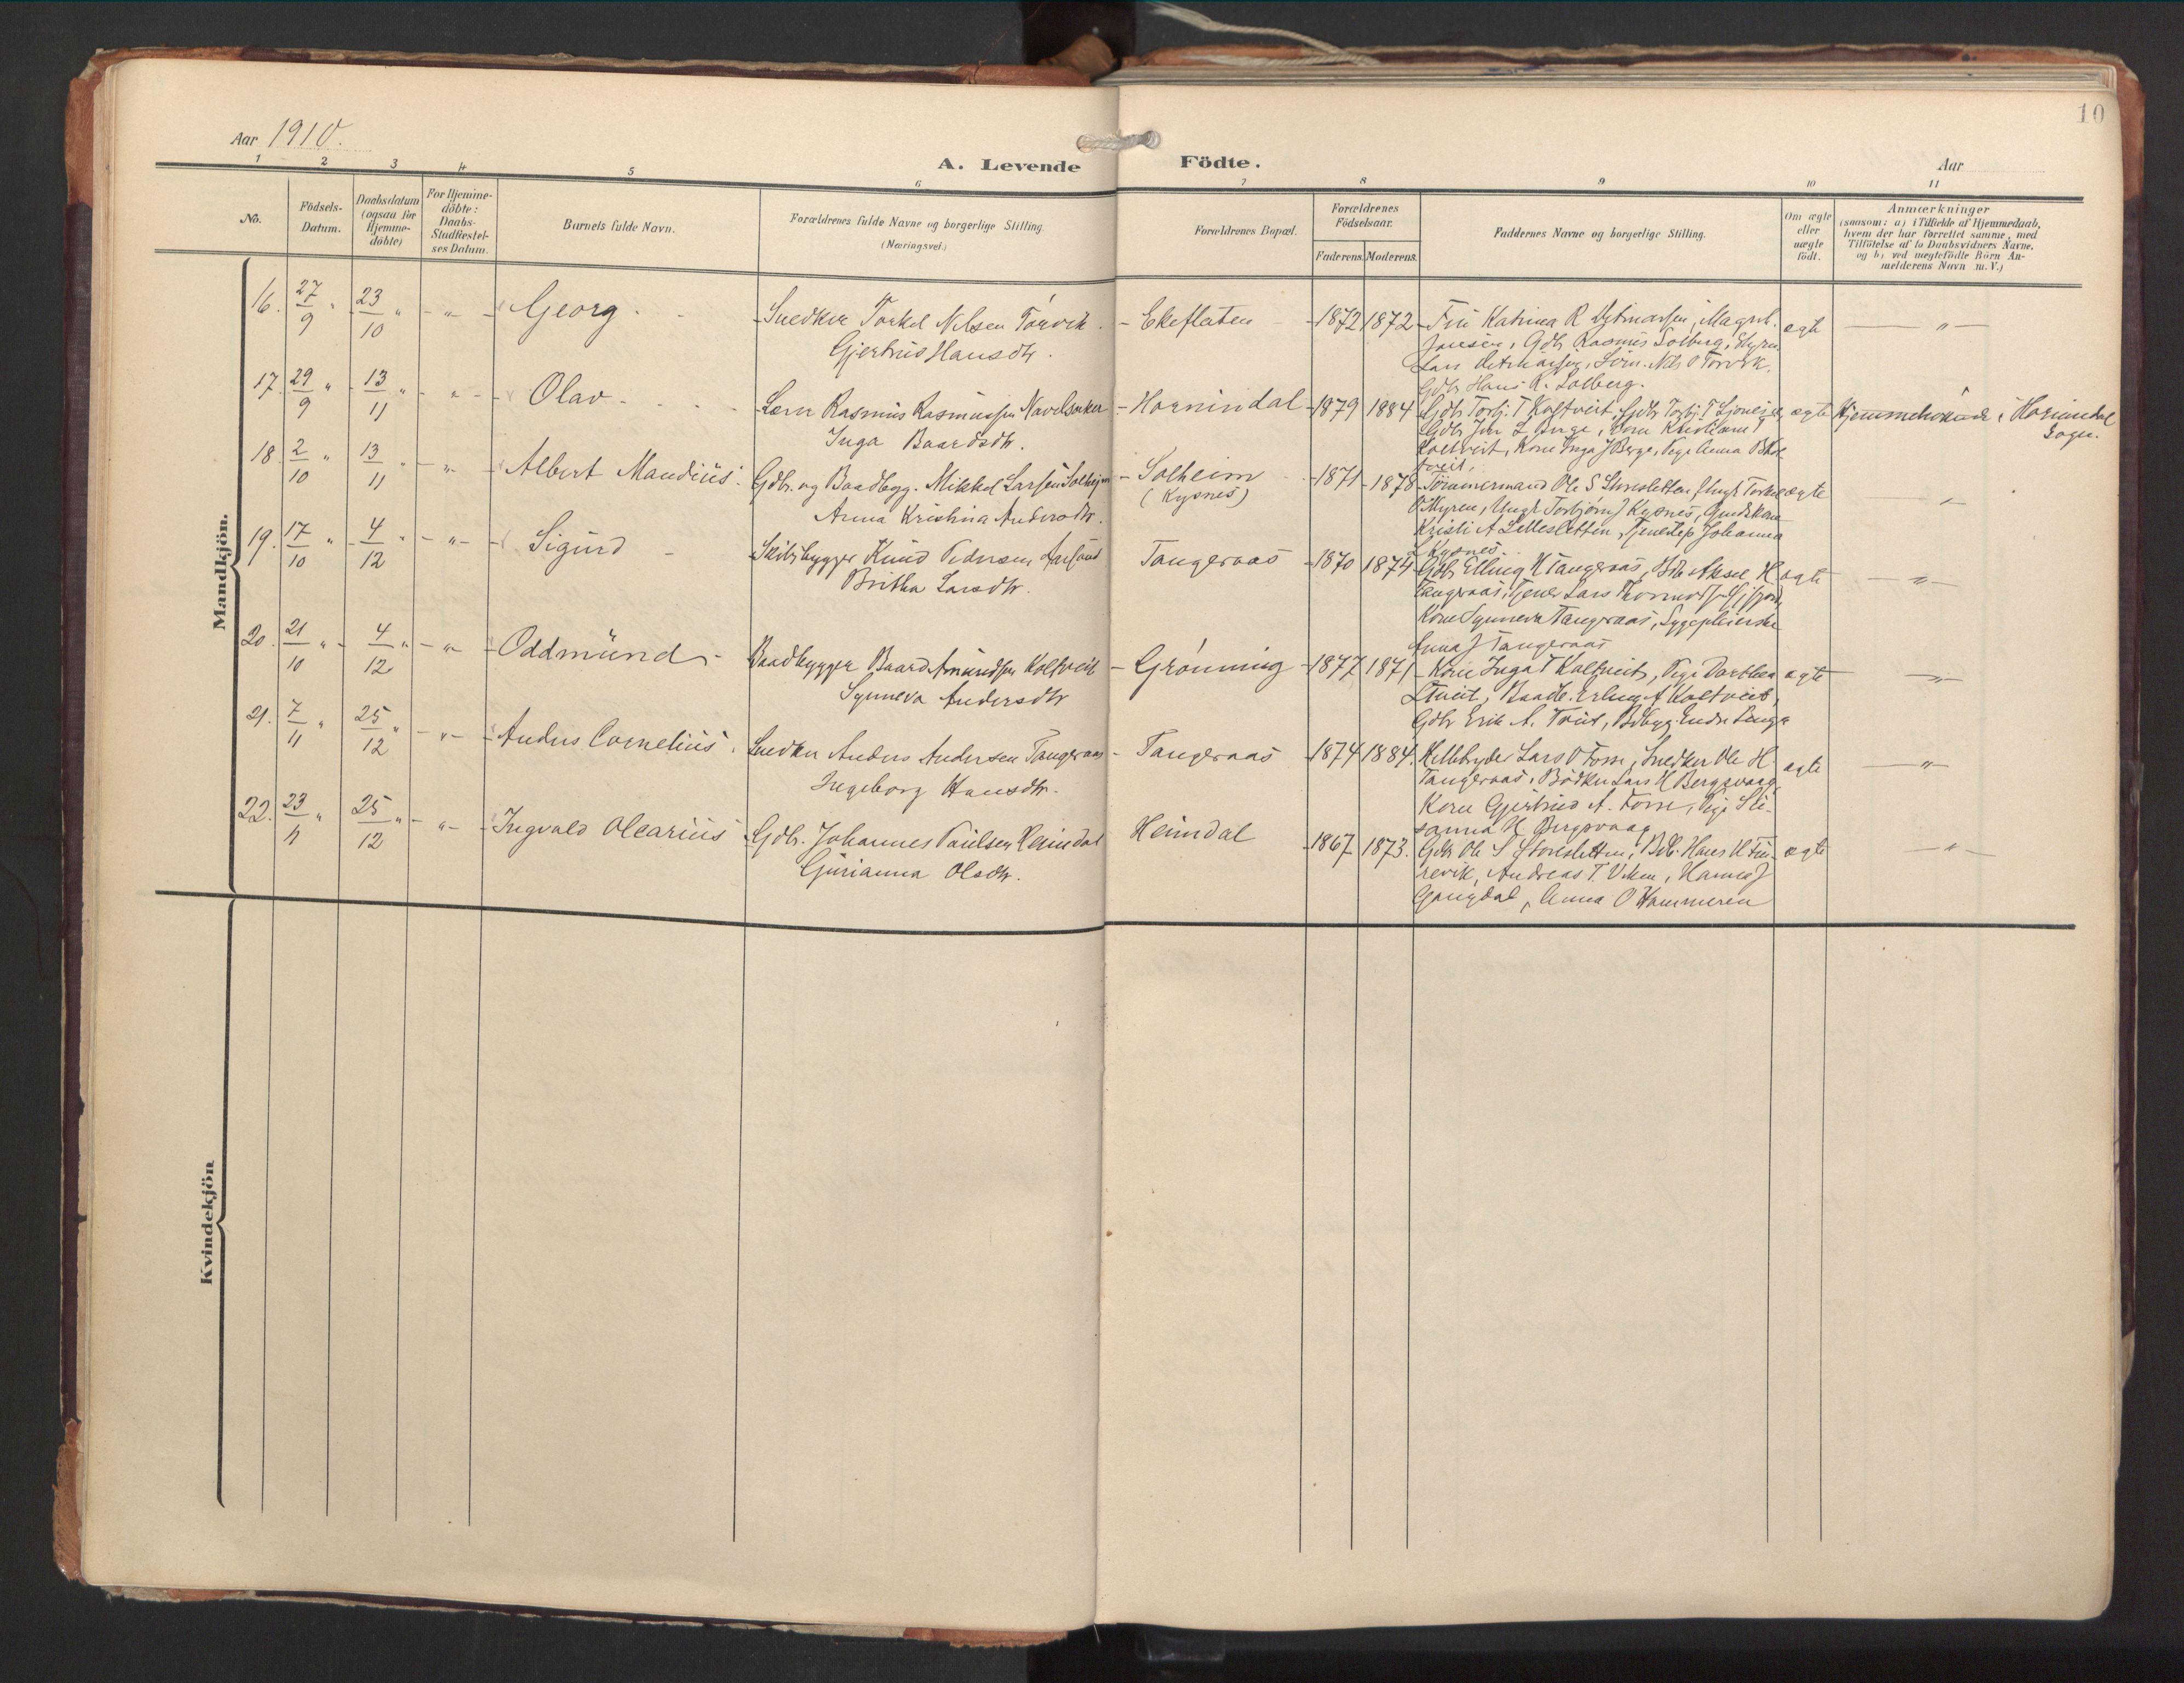 10
Aar 1910.
A. Levende Födte.
Aar
1 2 3 4 5 6 7 8 9 10 11
No.
Födsels-
Datum.
Daabsdatum
(ogsaa for
Hjemme-
döbte)
For Hjemme-
döbte:
Daabs-
Stadfæstel-
ses Datum.
Barnets fulde Navn.
Forældrenes fulde Navne og borgerlige Stilling.
(Næringsvei.)
Forældrenes Bopæl.
Forældrenes
Födselsaar.
Faderens. Moderens.
Faddernes Navne og borgerlige Stilling.
Om ægte
eller
uægte
födt.
Anmærkninger
(saasom: a) i Tilfælde af Hjemmedaab,
hvem der har forrettet samme, med
Tilföielse af to Daabsvidners Navne,
og b) ved uægtefödte Börn An-
melderens Navn m. V.)
Mandkjön.
16. 27/9 " 23/10 " - " - Georg
Snedker Torkel Nilsen Torvik
Gjertrus Hansdtr.
Ekeflaten 1872 1872
Frü Katrina R Detmarsen, Magnh.
Jansen, Gdbr Rasmüs Solberg,
Lars Detmarsen, Nils O Torvik,
Gdbr Hans R. Solberg.
ægte - " -
17. 29/9 " 13/11 " - " - Olav
Rasmüs Rasmussen Navelsaker
Inga Baardsdtr.
Hornindal 1879 1884
Gdbr Torbj. T Koltveit, Gdbr Torbj. T
Gdbr Jon L Berge, Kone Kristiane T
Koltveit, Kone Inga J Berge, Pige Anna B Kol
tveit.
ægte Hjemmehörende i Hornindal
Sogn.
18. 2/10 " 13/11 " - " - Albert Mandiüs
Gdbr. og Baadbygg. Mikkel Larsen Solheim
Anna Kristina Andersdtr.
Solheim
(Kysnes)
1871 1878
Tömmermand Ole S Storesletten, Ungk Torkel
O Myren, Ungk Torbjörn J Kysnes, Gmdskone
Kristi A Litlesletten, Johanna
L Kysnes.
ægte
19. 17/10 " 4/12 " - " - Sigürd
Skibsbygger Knüd Pedersen
Britha Larsdtr.
Tangeraas 1870 1874
Gdbr Elling H Tangeraas, Aksel H
Tangeraas, Lars
Kone Synneva Tangeraas, Sygepleierske
Anna J Tangeraas
ægte - " -
20. 21/10 " 4/12 " - " - Oddmünd
Baadbygger Baard Amündsen Koltveit
Synneva Andersdtr
Grönning 1877 1871
Kone Inga T Koltveit, Pige Dorthea
Tveit, Baadb. Erling A Koltveit,
Gdbr Erik A. Tveit, Bdbygg. Endre
ægte - " -
21. 7/11 " 25/12 " - " - Anders Cornelius
Snedker Anders Andersen Tangeraas
Ingeborg Hansdtr.
Tangeraas 1874 1884.
Lars O Fosse, Snedker Ole H
Tangeraas, Bödker Lars H Bergsvaag,
Kone Gjertrud A. Fosse, Pige Sü-
sanna H Bergsvaag
ægte - " -
22. 23/11 " 25/12 " - " - Ingvald Olearius
Gdbr. Johannes Paülsen Heimdal
Gürianna Olsdtr.
Heimdal 1867 1873.
Gdbr Ole S Storesletten, Hans H
revik, Andreas T. Viken,
Gangdal, Anna O Hammeren
ægte - " -
Kvindekjön